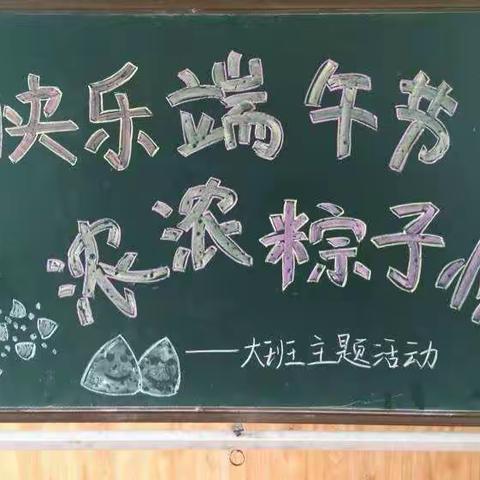 快乐端午节
浓浓粽子
——大班主题活动